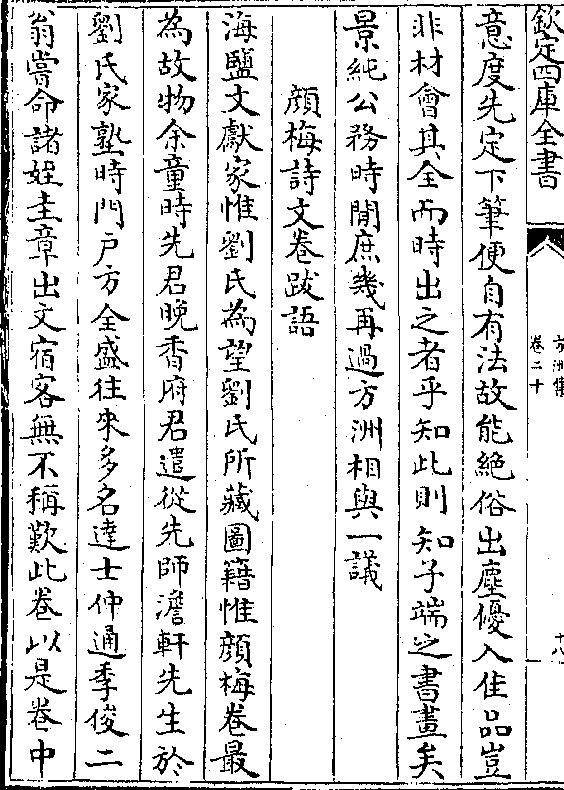 欽定四庫全書
方洲集
卷二十
十八
意度先定下筆便自有法故能絶俗出塵優入佳品豈
非材會其全而時出之者乎知此則知子端之書畫矣
景純公務時閒庶幾再過方洲相與一議
顔梅詩文卷跋語
海鹽文獻家惟劉氏為望劉氏所藏圖籍惟顔梅卷最
為故物余童時先君晚香府君遣從先師澹軒先生於
劉氏家塾時門户方全盛往來多名達士仲通季俊二
翁嘗命諸姪圭章出文宿客無不稱歎此卷以是卷中